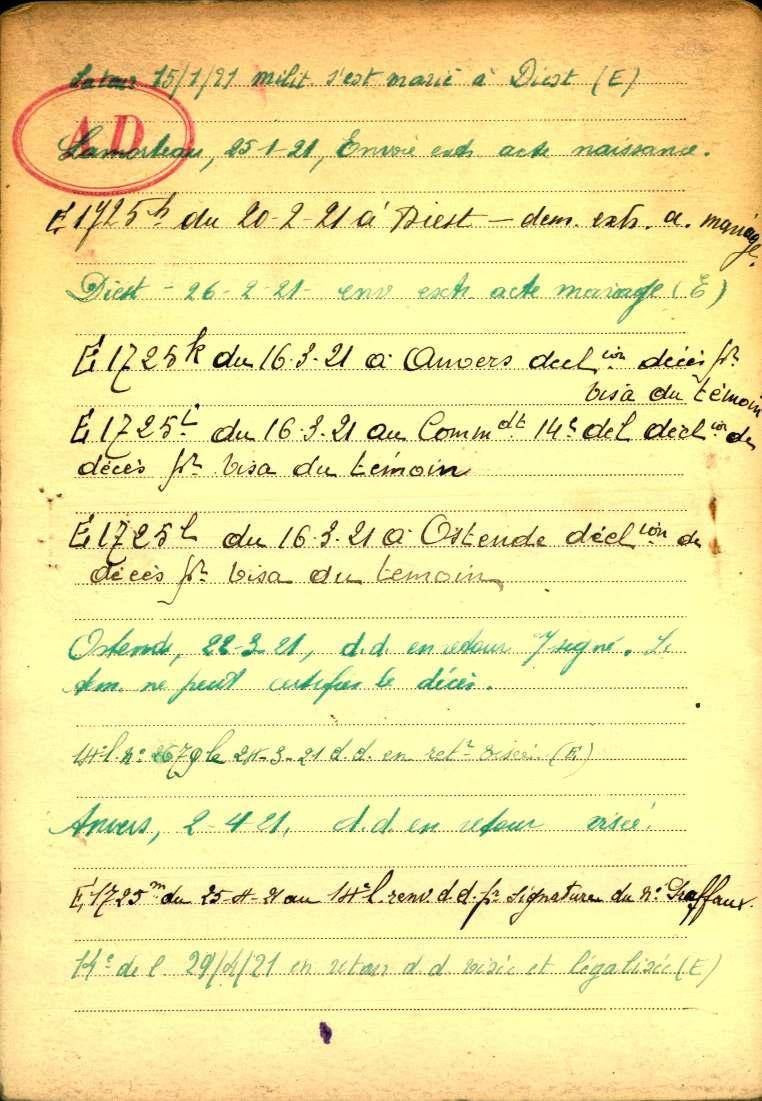 Latour 15/1/21 milit. s'est marié à Diest (E)
AD
Lamorteau, 25-1-21, Envoie extr acte naissance.
É 1725 h du 20-2-21 à Diest – dem. extr. a. mariage.
Diest - 26-2-21 - env extr. acte mariage (E)
É 1725 k du 16.3.21 à Anvers decl ion décès pr
visa du témoin
É 1725 du 16.3.21 au Comm dt 14e de l décl ion de
décès pr visa du témoin
É 1725 l du 16.3.21 à Ostende décl ion de
décès pr visa du temoin
Ostende, 22-3-21, d.d. en retour signé. Le
tem. ne peut certifier le décès.
14e l. no 2679 le 24-3-21 d.d. en ret r visée (E)
Anvers, 2-4-21, d.d. en retour visée.
É 1725 m du 25-4-21 au 14e l. renv. d.d. pr signature du
de l. 29/4/21 en retour d.d visée et légalisée (E)